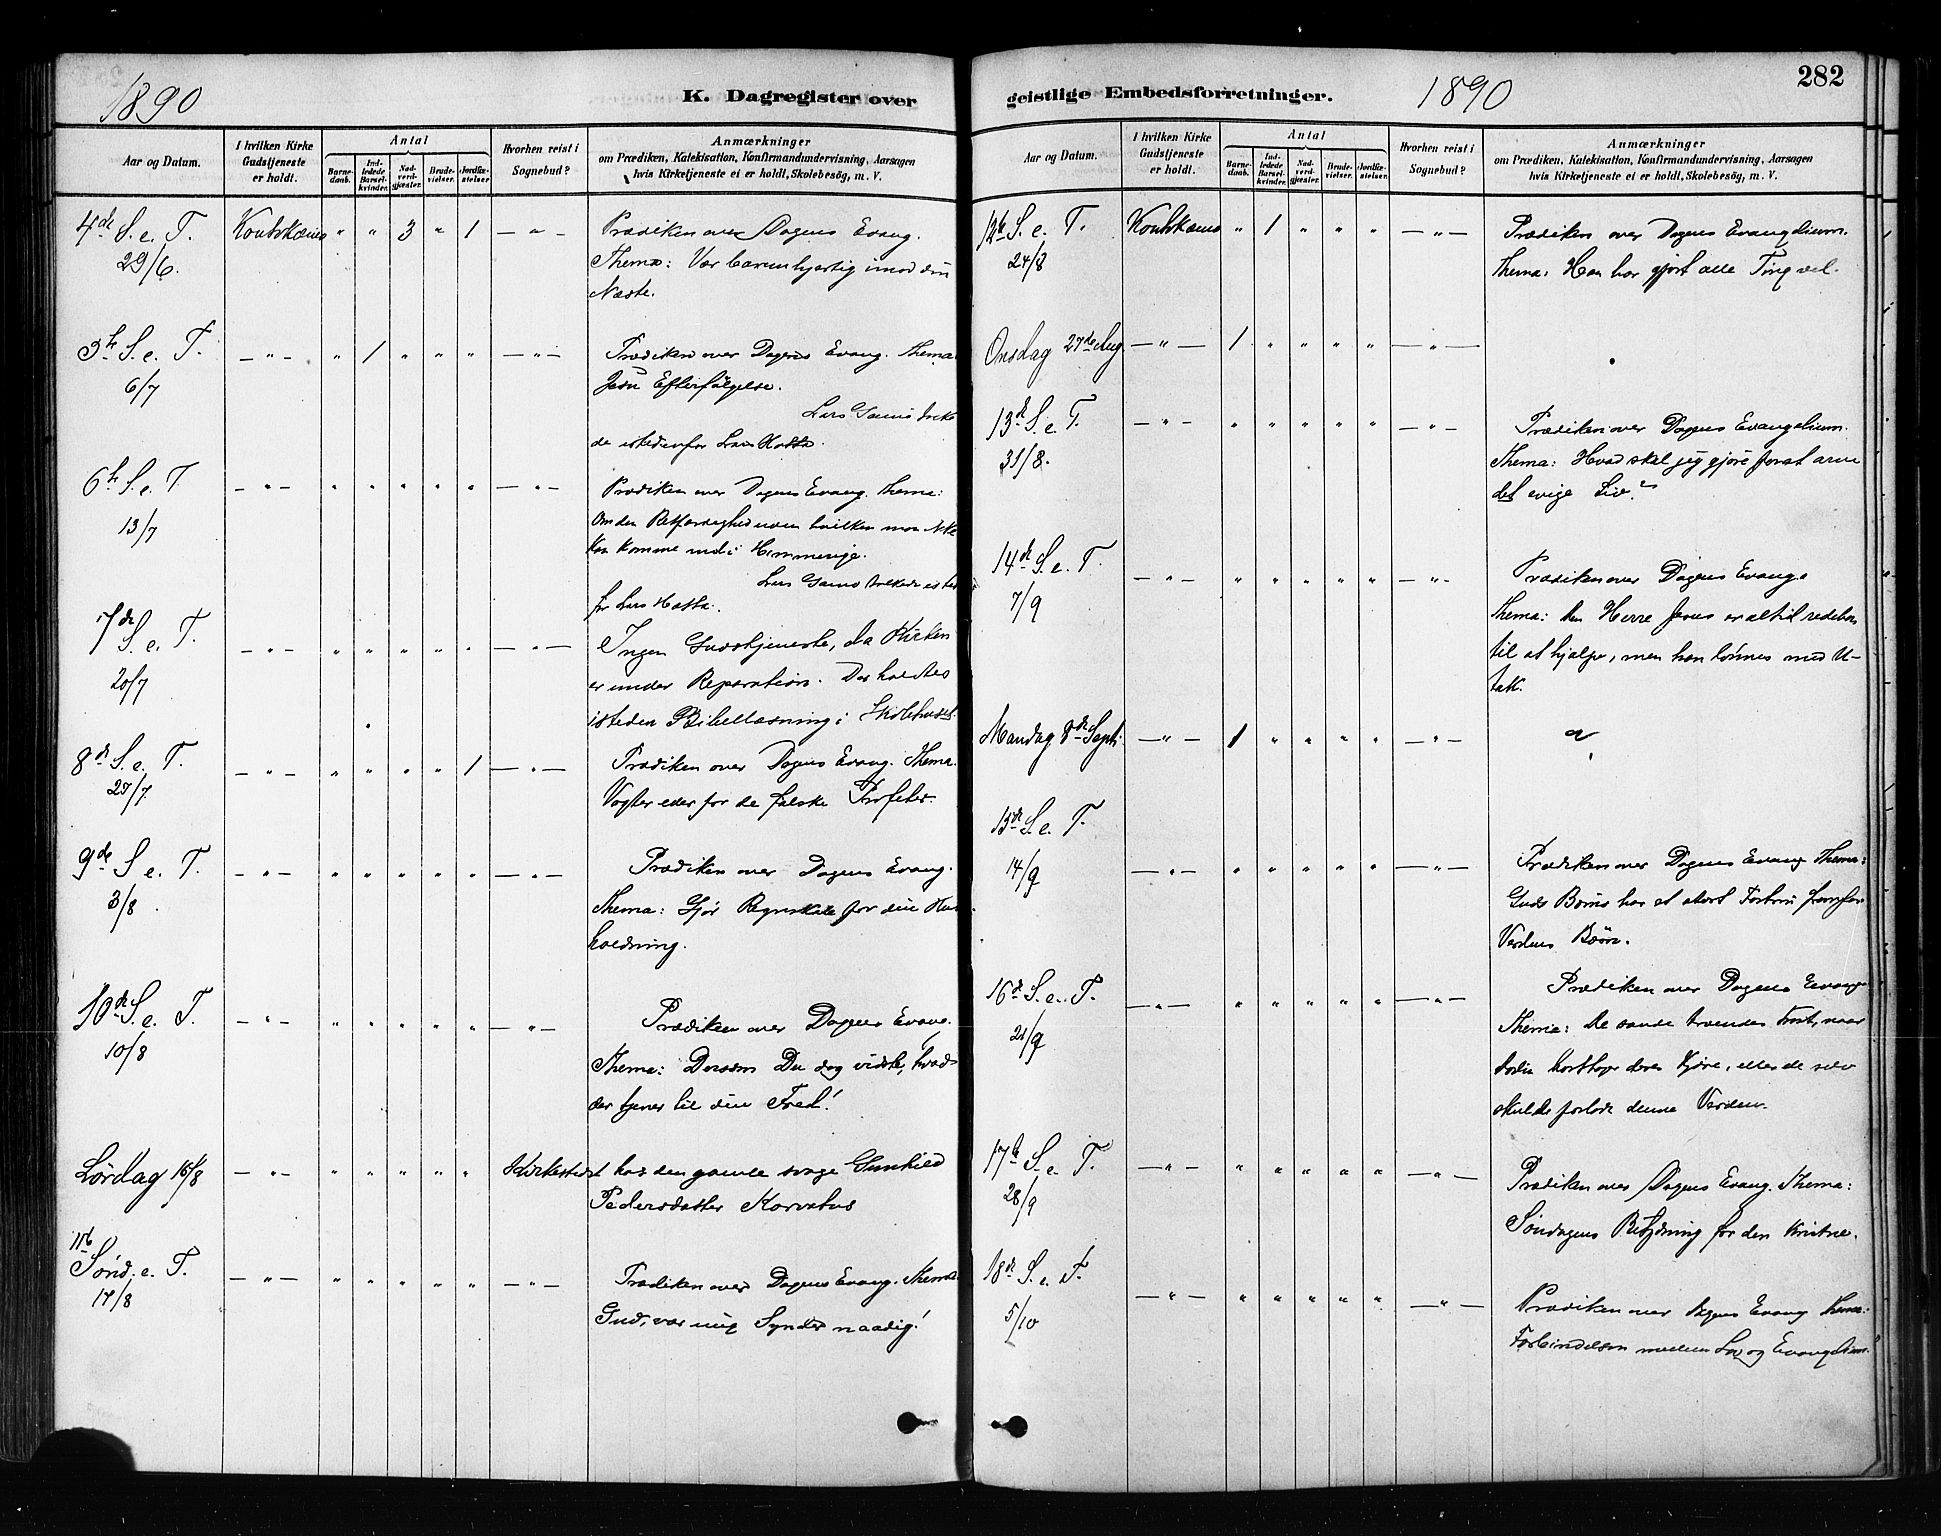 1890
K. Dagregister over
Aar og Datum.
I hvilken Kirke Gudstjeneste er holdt.
Antal
Barne-daab.
Ind-ledede Barsel-kvinder.
Nad-verd-gjæster.
Brude-vielser.
Jordfæ-stelser.
Hvorhen reist i Sognebud?
Anmærkninger
om Prædiken, Katekisation, Konfirmandundervisning, Aarsagen
hvis Kirketjeneste ei er holdt, Skolebesög, m. V.
4de S. e. T. Koutokæino " " 3 " 1 — " — Prædiken over Dagens Evang.
29/6. Thema: Vær barmhjertig imod din
Næste.
5te S. e. T. — " — " 1 " " " — " — Prædiken over Dagens Evang. Thema
6/7 Jesu Efterfølgelse.
Lars
de istedenfor Lars Hætta.
6te S. e. T. — " — " " " " " — " — Prædiken over Dagens Evang. Thema:
13/7 Om den Retfærdighed uden hvilken man ikke
kan komme ind i Himmerige.
Lars
for Lars Hætta.
7de S. e. T. — " — " " " " " — " — Ingen Gudstjeneste, da Kirken
20/7 er under Reparation. Der holdtes
isteden Bibellæsning i Skolehuset.
8de S. e. T. — " — " " " " 1 — " — Prædiken over Dagens Evang. Thema
27/7. Vogter eder for de falske Profeter.
9de S. e. T. — " — " " " " " — " — Prædiken over Dagens Evang.
3/8 Thema: Gjør Regnskab for din Hus
holdning.
10de S. e. T. — " — " " " " " — " — Prædiken over Dagens Evang.
10/8 Thema: Dersom Du dog vidste, hvad
der tjener til din Fred!
Lördag 16/8 — " — " " " " " Kirkestedet hos den gamle svage Gunhild
Pedersdatter Korvatus
11te Sönd. e. T. — " — " " " " " — " — Prædiken over Dagens Evang. Thema
17/8 Gud, vær mig Synder naadig!
geistlige Embedsforretninger.
1890
282
Aar og Datum.
I hvilken Kirke Gudstjeneste er holdt.
Antal
Barne-daab.
Ind-ledede Barsel-kvinder.
Nad-verd-gjæster.
Brude-vielser.
Jordfæ-stelser.
Hvorhen reist i Sognebud?
Anmærkninger
om Prædiken, Katekisation, Konfirmandundervisning, Aarsagen
hvis Kirketjeneste ei er holdt, Skolebesög, m. V.
12te S. e. T. Koutokæino " 1 " " " — " — Prædiken over Dagens Evangelium.
24/8 Thema: Han har gjort alle Ting vel.
Onsdag 27de Aug. — " — 1 " " " " — " —
13de S. e. T. — " — " " " " " — " — Prædiken over Dagens Evangelium.
31/8. Thema: Hvad skal jeg gjøre forat arve
det evige Liv?
14de S. e. T. — " — " " " " " — " — Prædiken over Dagens Evang.
7/9 Thema: Den Herre Jesus er altid redebon
til at hjælpe, men han lønnes med U-
tak.
Mandag 8de Septr. — " — 1 " " " " — " — "
15de S. e. T.
14/9 — " — " " " " " — " — Prædiken over Dagens Evang Thema:
Guds Børns har et stort Fortrin fremfor
Verdens Børn.
16de S. e. T. — " — " " " " " — " — Prædiken over Dagens Evang
21/9 Thema: De sande troendes Trøst, naar
borttager deres Kjære, eller de selv
skulde forlade denne Verden.
17de S. e. T. — " — " " " " " — " — Prædiken over Dagens Evang. Thema:
28/9 Söndagens Betydning for den Kristne.
18de S. e. T. — " — " " " " " — " — Prædiken over Dagens Evang Thema:
5/10 Forbindelsen mellem Lov og Evangelium.